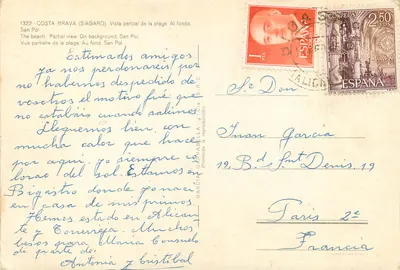 1329 - COSTA BRAVA (S'AGARO). Vista parcial de la playa. Al fondo,
San Pol
The beach. Partial view. On background, San Pol
Vue partielle de la plage. Au fond, San Pol
Estimados amigos
ya nos perdonareis por
no habernos despedido de
vosotros el motivo fué que
no estabáis cuando salimos
Lleguemos bien, con
mucha calor que hace
por aquí. yo siempre co
lorao del sol. Estamos en
Bigastro donde yo naci
en casa de mis primos.
Hemos estado en Alican-
te y Torrevieja. Muchos
besos para María Consuelo
de parte de.
Antonia y Cristóbal
1 PTA
ESPAÑA
2,50
ESPAÑA
Sr. Don
Juan Garcia
19, Bd. St Denis, 19
Paris 2e
Francia